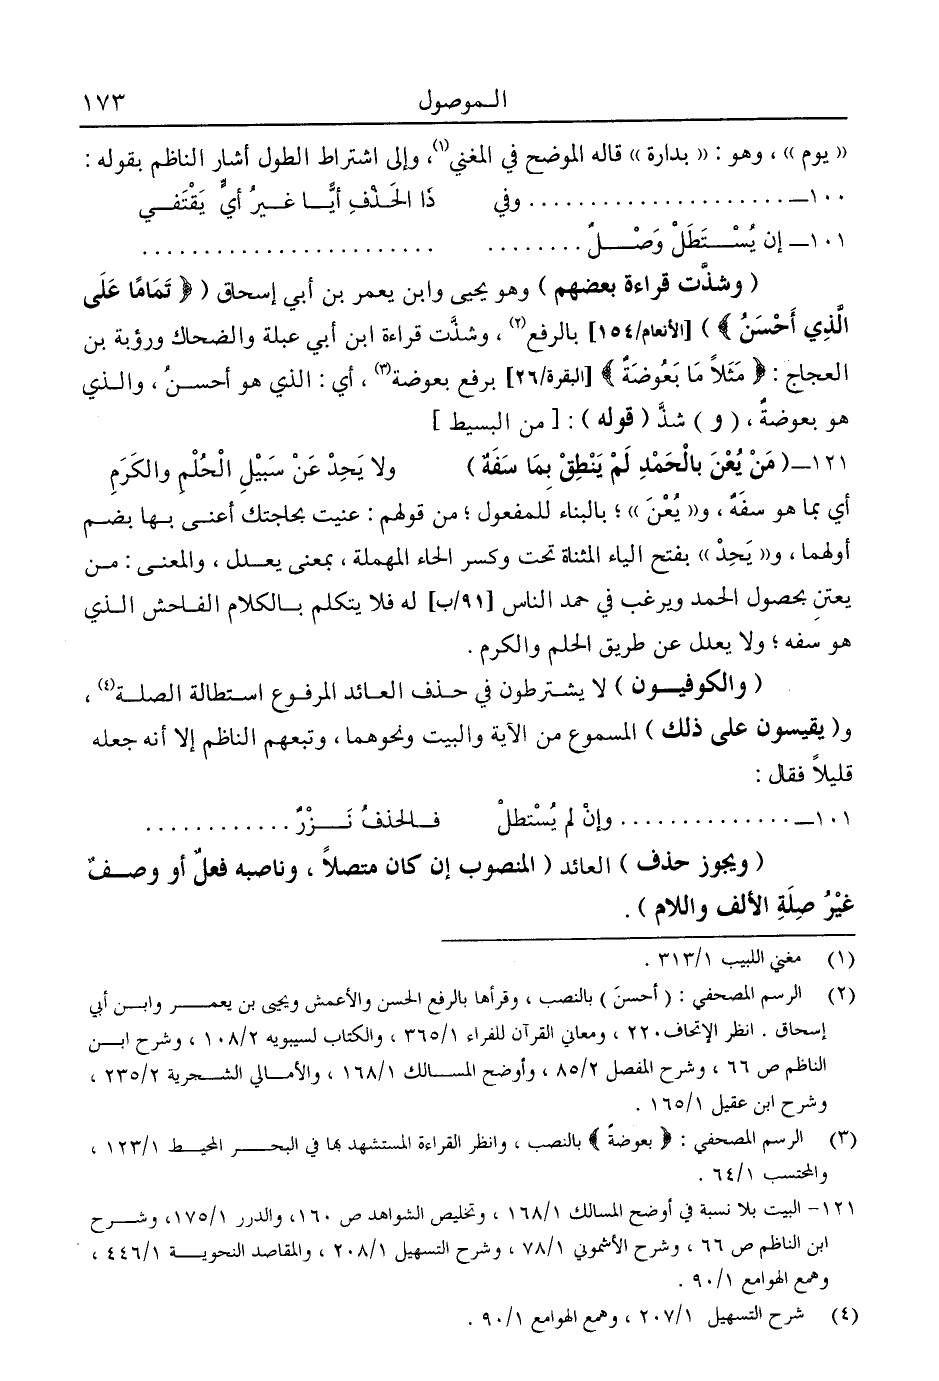 الموصول ١٧٣
« يوم » ، وهو : « بدارة » قاله الموضح في المغني(١)، وإلى اشتراط الطول أشار الناظم بقوله :
١٠٠ــ ..................... وفي ذَا الحَذْفِ أيًّا غيرُ أيٍّ يَقْتَفي
١٠١ــ إن يُسْتَطَلْ وَصْلٌ ........ ........................
( وشذَّت قراءة بعضهم ) وهو يحيى وابن يعمر بن أبي إسحاق ( ﴿ تَمَامًا عَلَى
الَّذِي أَحْسَنُ ﴾ ) [الأنعام/١٥٤] بالرفع(٢) ، وشذَّت قراءة ابن أبي عبلة والضحاك ورؤبة بن
العجاج : ﴿ مَثَلاً مَا بَعُوضَةٌ ﴾ [البقرة/٢٦] برفع بعوضة(٣) ، أي : الذي هو أحسنُ ، والذي
هو بعوضةٌ ، ( و ) شذَّ ( قوله ) : [ من البسيط ]
١٢١ــ( مَنْ يُعْنَ بالْحَمْدِ لَمْ يَنْطِقْ بِمَا سَفَهٌ ) ولا يَحِدْ عَنْ سَبِيْلِ الْحُلْمِ والكَرَمِ
أي بما هو سفهٌ ، و« يُعْنَ » ؛ بالبناء للمفعول ؛ من قولهم : عنيت بحاجتك أعنى بها بضم
أولهما ، و« يَحِدْ » بفتح الياء المثناة تحت وكسر الحاء المهملة ، بمعنى يعدل ، والمعنى : من
يعتنِ بحصول الحمد ويرغب في حمد الناس [٩١/ب] له فلا يتكلم بالكلام الفاحش الذي
هو سفه ؛ ولا يعدل عن طريق الحلم والكرم .
( والكوفيون ) لا يشترطون في حذف العائد المرفوع استطالة الصلة(٤) ،
و( يقيسون على ذلك ) المسموع من الآية والبيت ونحوهما ، وتبعهم الناظم إلا أنه جعله
قليلاً فقال :
١٠١ــ .................. وإنْ لم يُسْتطلْ فالحذفُ نَزْرٌ ............
( ويجوز حذف ) العائد ( المنصوب إن كان متصلاً ، وناصبه فعلٌ أو وصفٌ
غيْرُ صِلَةِ الألف واللام ) .
(١) مغني اللبيب ٣١٣/١ .
(٢) الرسم المصحفي : ( أحسنَ ) بالنصب ، وقرأها بالرفع الحسن والأعمش ويحيى بن يعمر وابن أبي
إسحاق . انظر الإتحاف ٢٢٠ ، ومعاني القرآن للفراء ٣٦٥/١ ، والكتاب لسيبويه ١٠٨/٢ ، وشرح ابن
الناظم ص ٦٦ ، وشرح المفصل ٨٥/٢ ، وأوضح المسالك ١٦٨/١ ، والأمالي الشجرية ٢٣٥/٢ ،
وشرح ابن عقيل ١٦٥/١ .
(٣) الرسم المصحفي : ﴿ بعوضةً ﴾ بالنصب ، وانظر القراءة المستشهد بها في البحر المحيط ١٢٣/١ ،
والمحتسب ٦٤/١ .
١٢١- البيت بلا نسبة في أوضح المسالك ١٦٨/١ ، وتخليص الشواهد ص ١٦٠، والدرر ١٧٥/١، وشرح
ابن الناظم ص ٦٦ ، وشرح الأشموني ٧٨/١ ، وشرح التسهيل ٢٠٨/١ ، والمقاصد النحوية ٤٤٦/١ ،
وهمع الهوامع ٩٠/١ .
(٤) شرح التسهيل ٢٠٧/١ ، وهمع الهوامع ٩٠/١ .